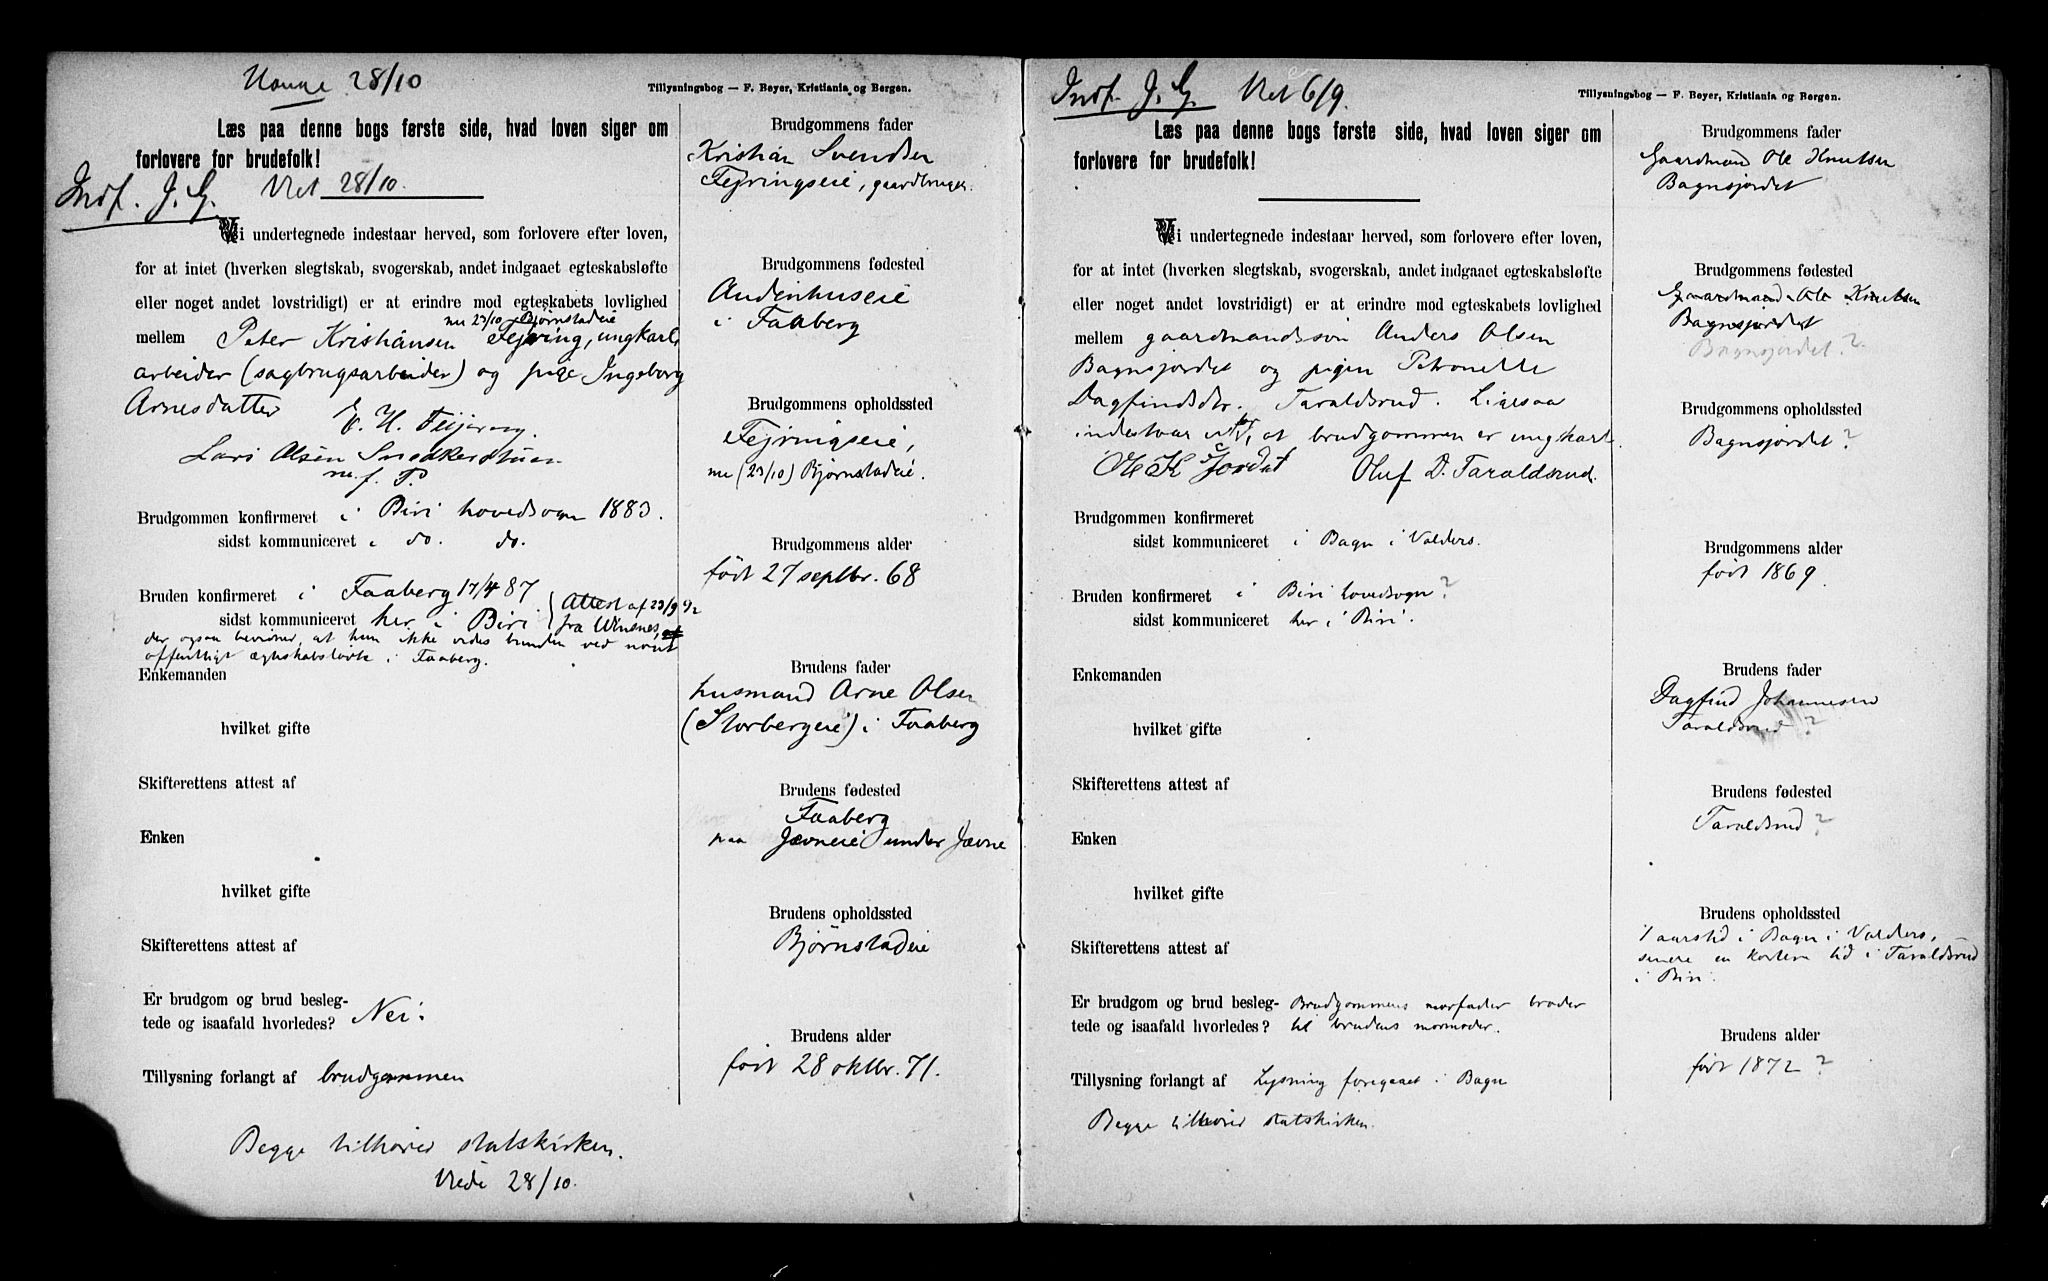 28/10
Tillysningsbog — F. Beyer, Kristiania og Bergen.
Læs paa denne bogs første side, hvad loven siger om
forlovere for brudefolk!
Indf. J. G. Viet 28/10.
Vi undertegnede indestaar herved, som forlovere efter loven,
for at intet (hverken slegtskab, svogerskab, andet indgaaet egteskabsløfte
eller noget andet lovstridigt) er at erindre mod egteskabets lovlighed
nu 23/10 Bjørnstadeie
mellem Peter Kristiansen Fejring, ungkarl,
arbeider (sagbrugsarbeider) og pige Ingeborg
Arnesdatter
E. H. Feijering.
Lars Olsen Snedkerstuen
m. f. P.
Brudgommen konfirmeret i Biri hovedsogn 1883.
sidst kommuniceret i do. do.
Bruden konfirmeret i Faaberg 17/4 87
sidst kommuniceret her i Biri
Attest af 23/9 92
fra Winsnes,
der ogsaa bevidner, at hun ikke vides bunden ved noget
offentligt ægteskabsløfte i Faaberg.
Enkemanden
hvilket gifte
Skifterettens attest af
Enken
hvilket gifte
Skifterettens attest af
Er brudgom og brud besleg-
tede og isaafald hvorledes? Nei.
Tillysning forlangt af brudgommen
Begge tilhører statskirken.
Viede 28/10.
Brudgommens fader
Kristian Svendsen
Fejringseie, gaardbruger.
Brudgommens fødested
Audenhuseie
i Faaberg
Brudgommens opholdssted
Fejringseie,
nu (23/10) Bjørnstadeie.
Brudgommens alder
født 27 septbr. 68
Brudens fader
husmand Arne Olsen
(Storbergeie) i Faaberg
Brudens fødested
Faaberg
paa Jevneeie under Jevne
Brudens opholdssted
Bjørnstadeie
Brudens alder
født 28 oktbr. 71.
Indf. J. G. Viet 6/9.
Tillysningsbog — F. Beyer, Kristiania og Bergen.
Læs paa denne bogs første side, hvad loven siger om
forlovere for brudefolk!
Vi undertegnede indestaar herved, som forlovere efter loven,
for at intet (hverken slegtskab, svogerskab, andet indgaaet egteskabsløfte
eller noget andet lovstridigt) er at erindre mod egteskabets lovlighed
mellem gaardmandssøn Anders Olsen
Bagnsjordet og pigen Petronelle
Dagfindsdtr. Taraldsrud. Ligesaa
indestaar vi for, at brudgommen er ungkarl.
Ole K Jordet Oluf D. Taraldsrud.
Brudgommen konfirmeret
sidst kommuniceret i Bagn i Valders.
Bruden konfirmeret i Biri hovedsogn?
sidst kommuniceret her i Biri.
Enkemanden
hvilket gifte
Skifterettens attest af
Enken
hvilket gifte
Skifterettens attest af
Er brudgom og brud besleg- Brudgommens morfader broder
tede og isaafald hvorledes? til brudens mormoder.
Tillysning forlangt af Lysning foregaaet i Bagn
Begge tilhører statskirken.
Brudgommens fader
Gaardmand Ole Knutsen
Bagnsjordet
Brudgommens fødested
Gaardmand Ole Knutsen
Bagnsjordet
Bagnsjordet?
Brudgommens opholdssted
Bagnsjordet?
Brudgommens alder
født 1869.
Brudens fader
Dagfind Johannesen
Taraldsrud?
Brudens fødested
Taraldsrud?
Brudens opholdssted
1 aarstid i Bagn i Valders,
senere en kortere tid i Taraldsrud
i Biri.
Brudens alder
født 1872?